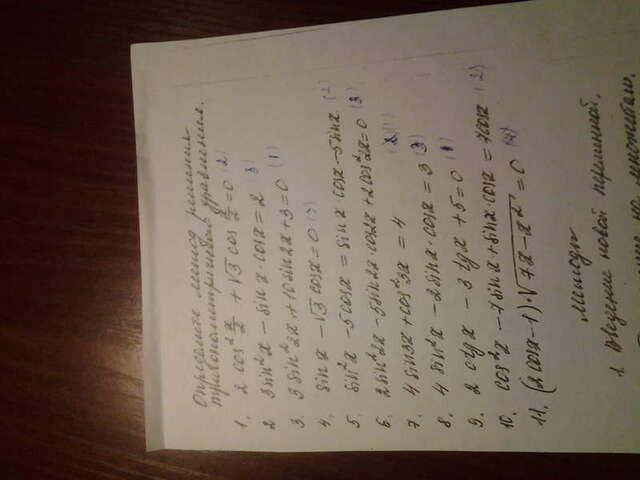 Определите метод решения
тригонометрического уравнения.
1. 2 cos² x/2 + √3 cos x/2 = 0 (2)
2. 3 sin²x - sin x · cos x = 2 (3)
3. 3 sin² 2x + 10 sin 2x + 3 = 0 (1)
4. sin x - √3 cos x = 0 (3)
5. sin²x - 5 cos x = sin x · cos x - 5 sin x (2)
6. 2 sin² 2x - 5 sin 2x · cos 2x + 2 cos² 2x = 0 (3)
7. 4 sin 3x + cos² 3x = 4 (1)
8. 4 sin²x - 2 sin x · cos x = 3 (3)
9. 2 ctg x - 3 tg x + 5 = 0 (1)
10. cos²x - 7 sin x + sin x · cos x = 7 cos x (2)
11. (2 cos x - 1) · √7x - x² = 0 (4)
Методы
1. Введение новой переменной.
на множители.